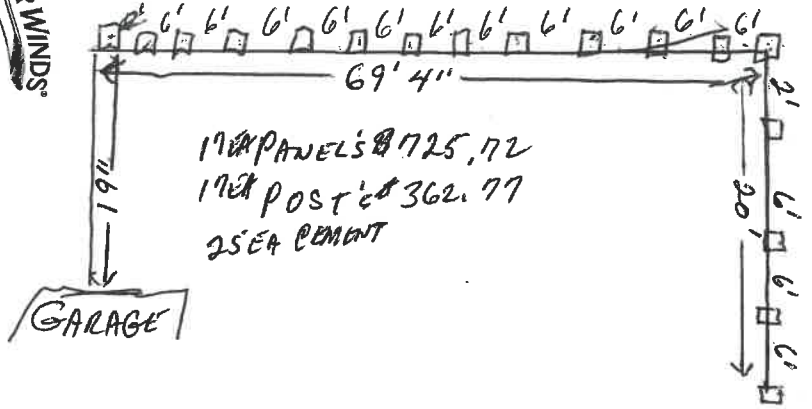 R WINDS®
2' 6' 6' 6' 6' 6' 6' 6' 6' 6' 6' 6'
69' 4"
17EA PANEL'S $725.72
17EA POST'S $362.77
25EA CEMENT
19"
GARAGE
20'
2'
6'
6'
6'